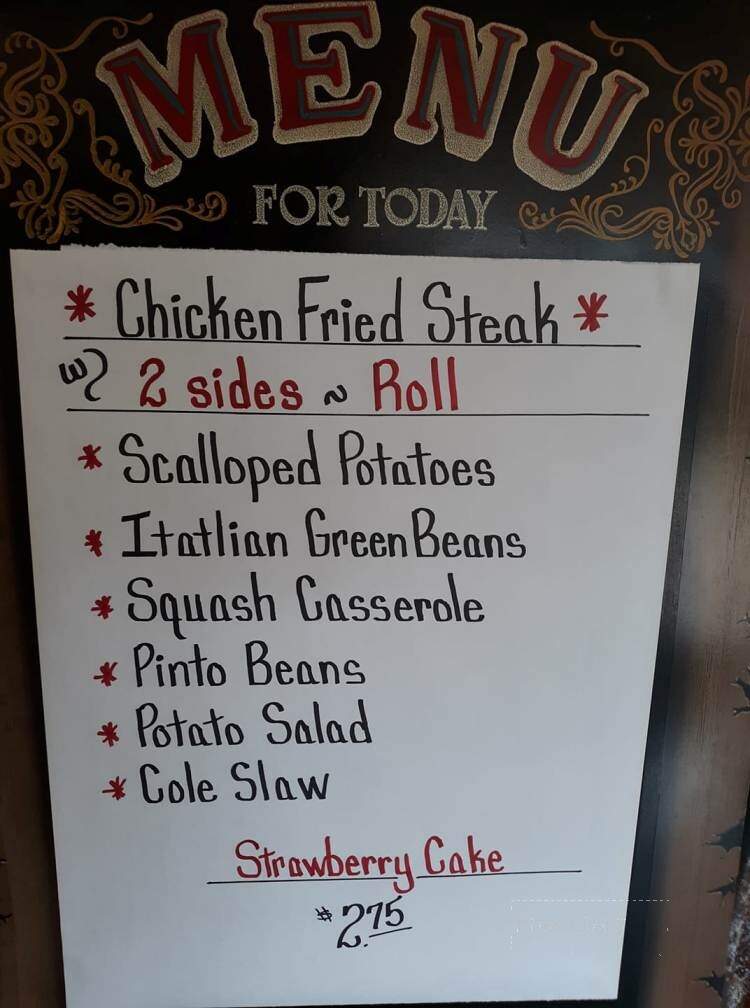 MENU
FOR TODAY
* Chicken Fried Steak *
w/ 2 sides ~ Roll
* Scalloped Potatoes
* Itatlian Green Beans
* Squash Casserole
* Pinto Beans
* Potato Salad
* Cole Slaw
Strawberry Cake
$2.75